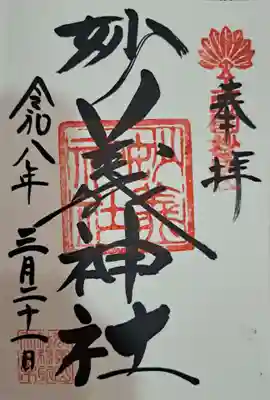 奉拝
妙義神社
令和八年 三月二十一日